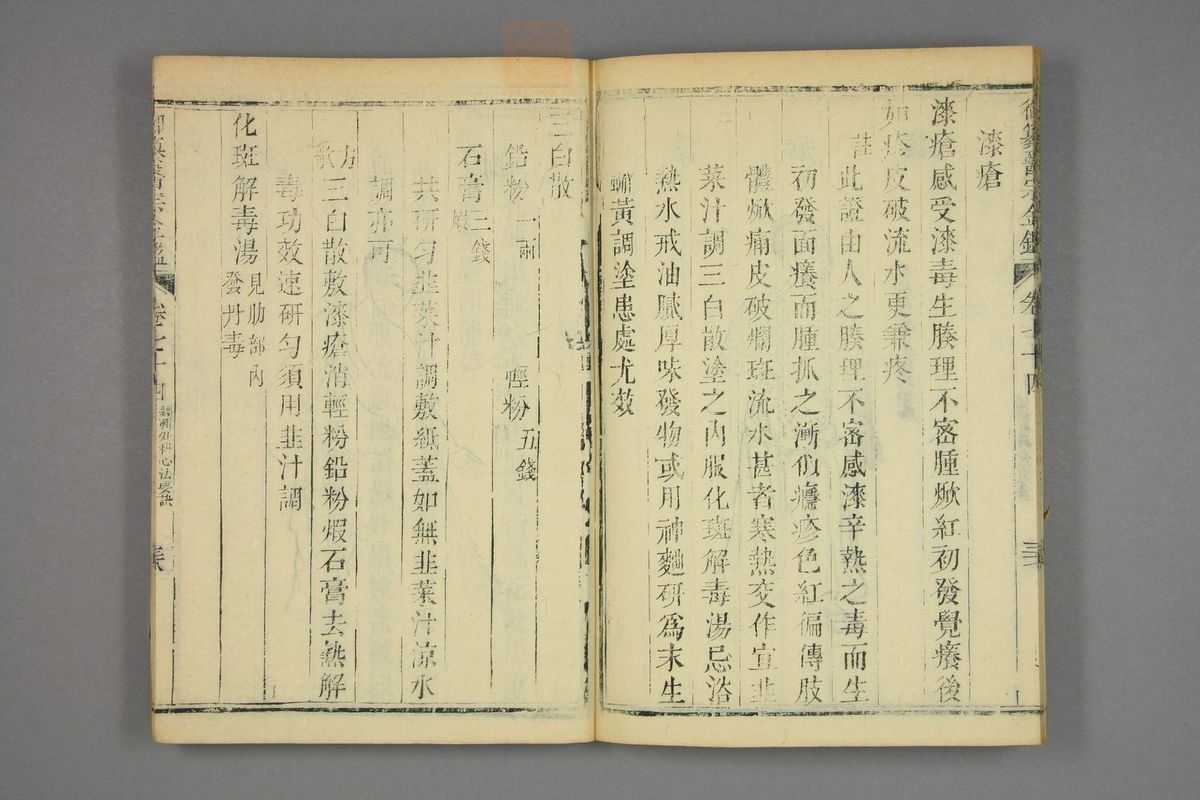 御纂醫宗金鑑 卷七十四
漆瘡
漆瘡感受漆毒生腠理不密腫焮紅初發覺癢後
如疹皮破流水更兼疼
註
此證由人之腠理不密感漆辛熱之毒而生
初發面癢而腫抓之漸似癮疹色紅徧傳肢
體焮痛皮破爛斑流水甚者寒熱交作宜韭
菜汁調三白散塗之內服化斑解毒湯忌浴
熱水戒油膩厚味發物或用神麯研為末生
蟹黃調塗患處尤效
三白散
鉛粉一兩 輕粉五錢
石膏三錢煅
共研勻韭菜汁調敷紙蓋如無韭菜汁涼水
調亦可
方歌
三白散敷漆瘡消輕粉鉛粉煆石膏去熱解
毒功效速研勻須用韭汁調
化斑解毒湯見肋部內發丹毒
御纂醫宗金鑑 卷七十四 編輯外科心法要訣